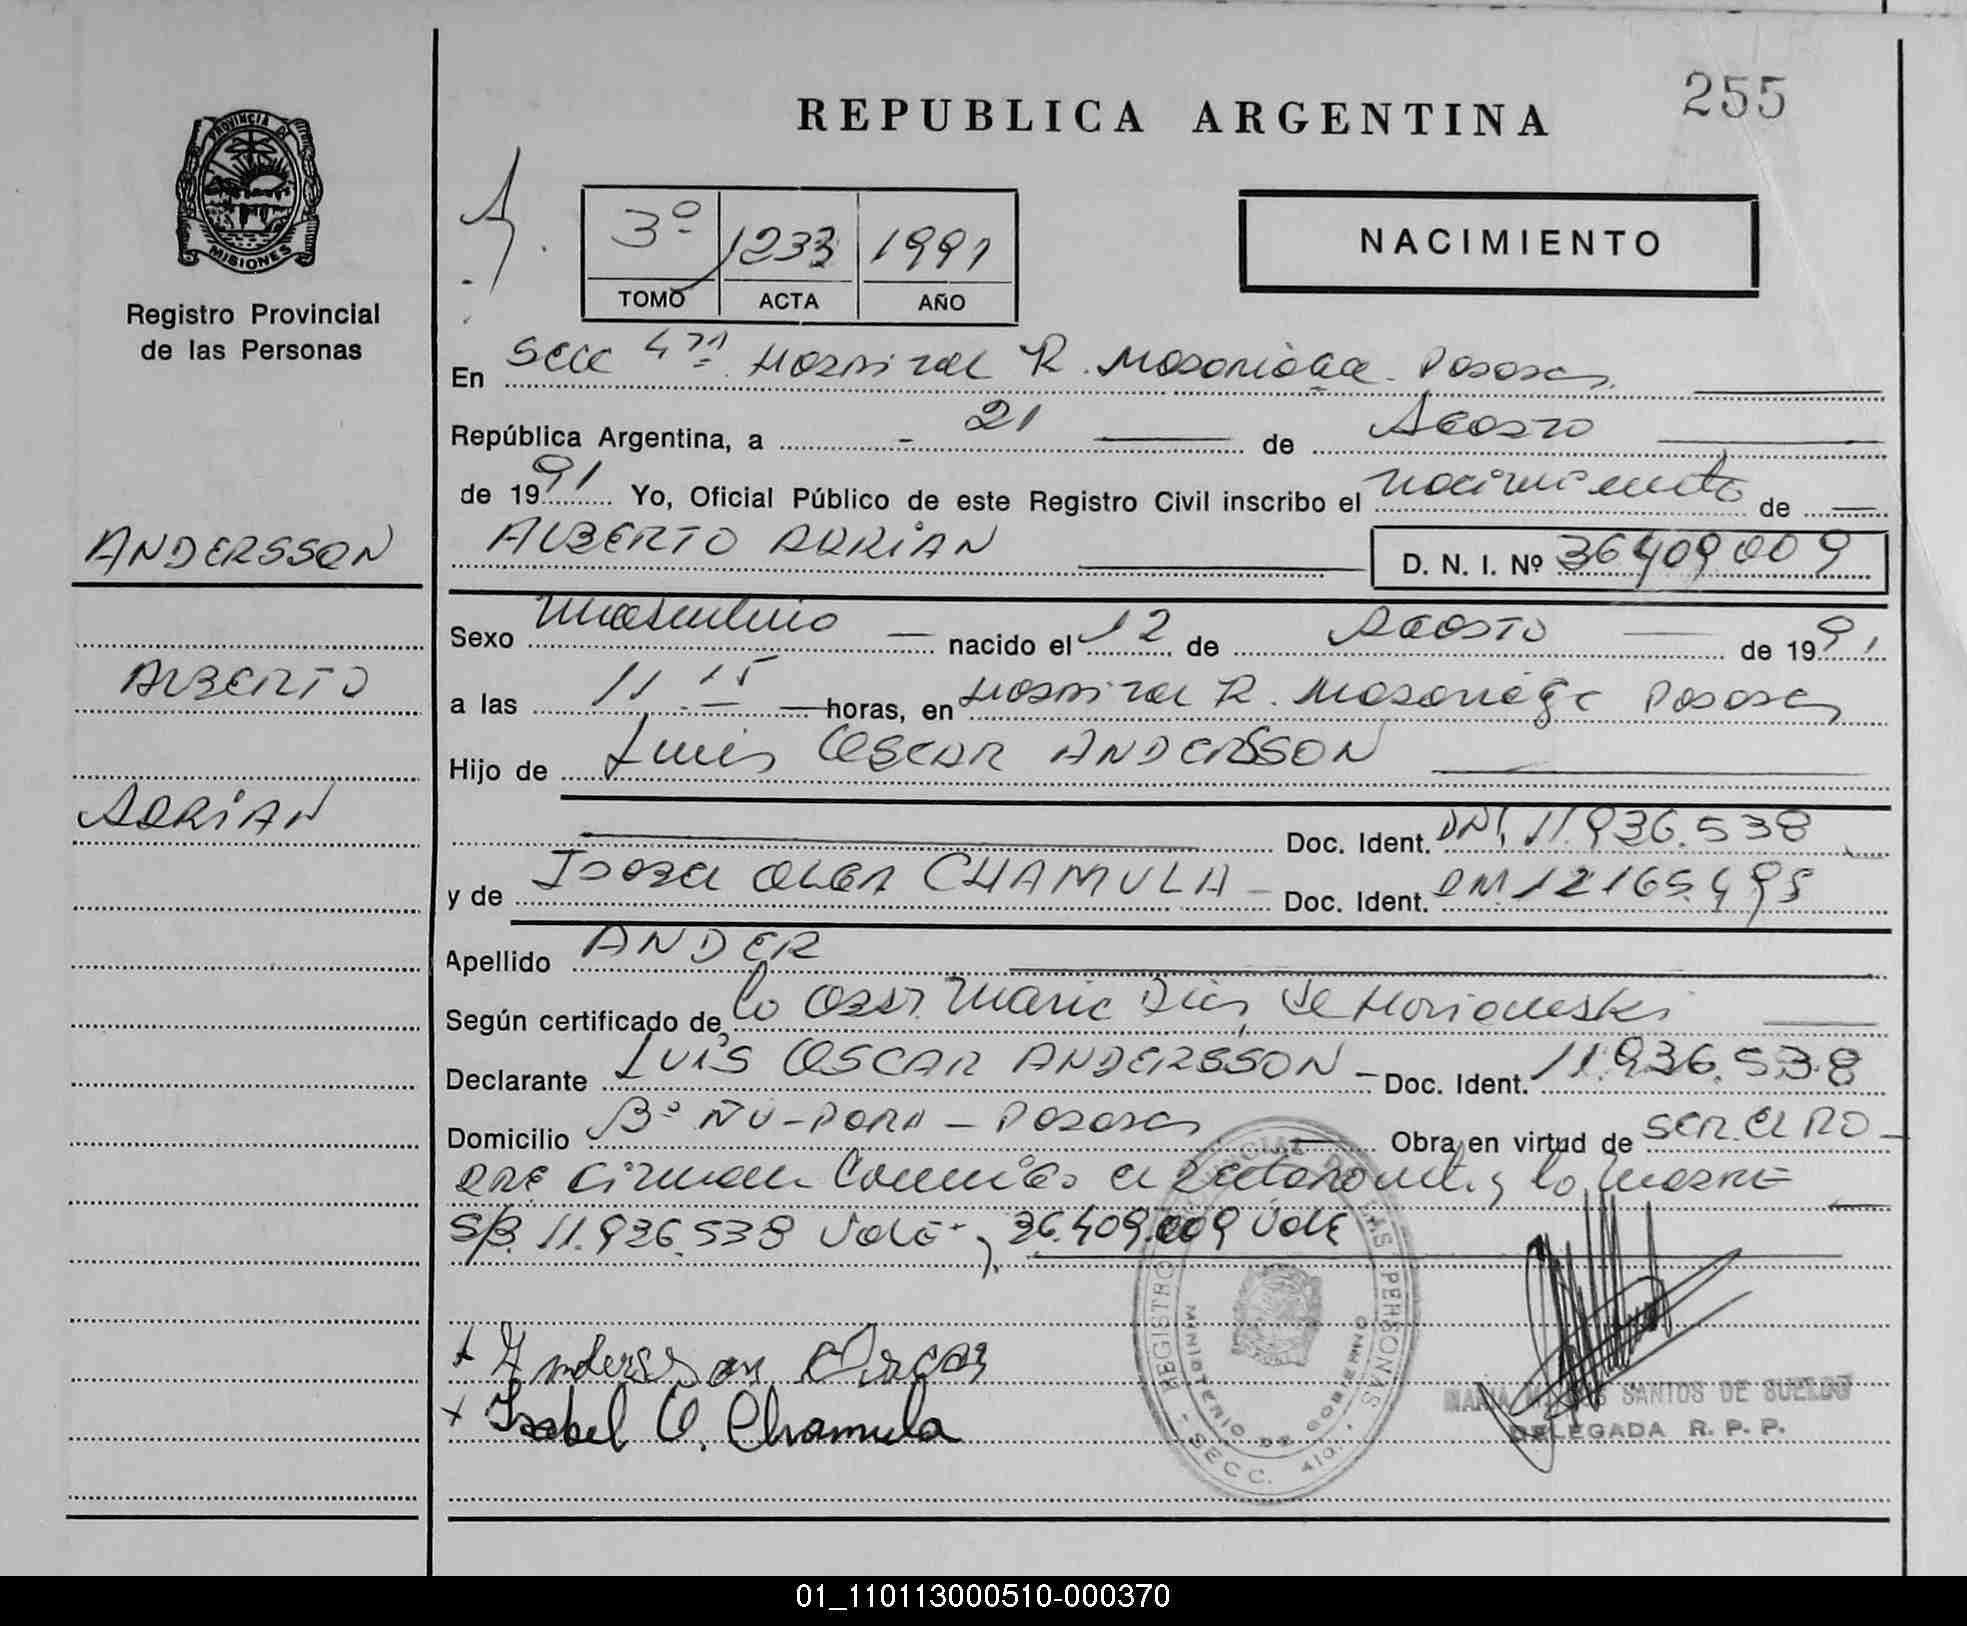 255
REPUBLICA ARGENTINA
PROVINCIA DE
MISIONES
Registro Provincial
de las Personas
3º 1233 1991
TOMO ACTA AÑO
NACIMIENTO
En Secc 4ta Hospital R. Madariaga Posadas
República Argentina, a 21 de Agosto
de 1991 Yo, Oficial Público de este Registro Civil inscribo el nacimiento de
ANDERSSON
ALBERTO ADRIAN D. N. I. Nº 36409009
Sexo Masculino nacido el 12 de Agosto de 1991
ALBERTO
a las 11 15 horas, en Hospital R. Madariaga Posadas
Hijo de Luis OSCAR ANDERSSON
ADRIAN
Doc. Ident. DNI 11.936.538
y de Isabel OLGA CHAMULA Doc. Ident. 12165
Apellido ANDER
Según certificado de la Obst. Maria de
Declarante LUIS OSCAR ANDERSSON - Doc. Ident. 11.936.538
Domicilio Bº ÑU-PORA - Posadas Obra en virtud de SER EL PA-
DRE firman el declarante y la MADRE
S/B. 11.936.538 Vale y 36.409.009 VALE
+ Andersson Oscar
+ Isabel O. Chamula
REGISTRO PROVINCIAL DE LAS PERSONAS
MINISTERIO DE GOBIERNO
- SECC. 4ta. -
MARIA SANTOS DE SUELDO
DELEGADA R. P. P.
01_110113000510-000370